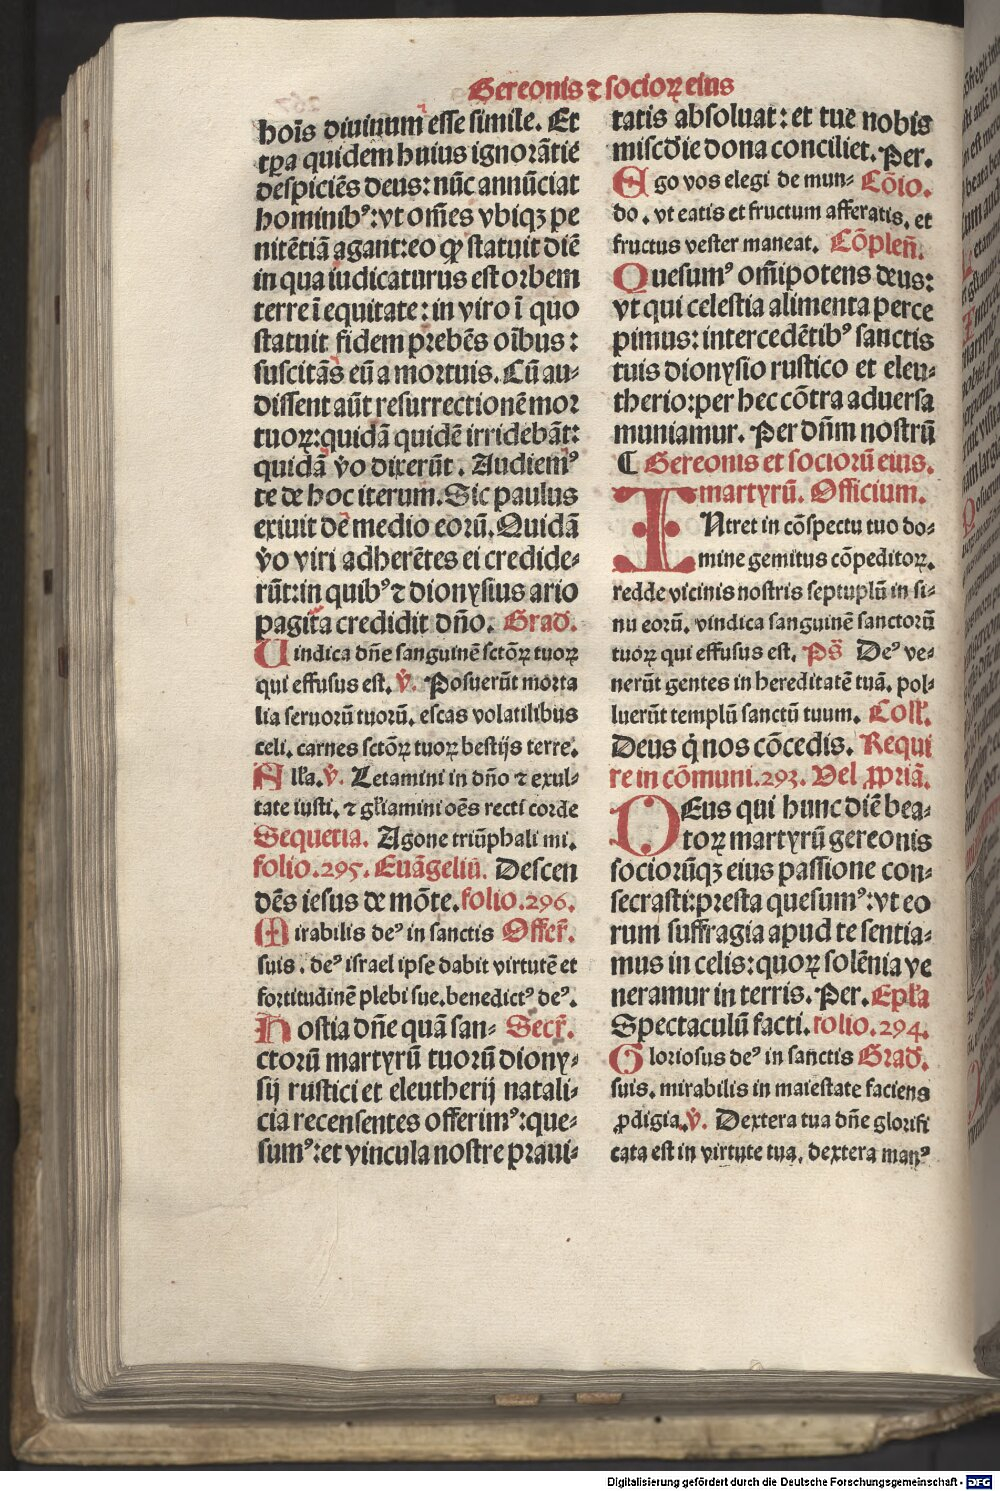 Gereonis ⁊ socioꝝ eius
hoīs diuinum esse simile. Et
tꝑa quidem huius ignorātie
despiciēs deus: nūc annūciat
hominibꝰ: vt oēs vbiqꝫ pe
nitētiā agant: eo ꝙ statuit diē
in qua iudicaturus est orbem
terre ī equitate: in viro ī quo
statuit fidem prebēs oībus:
suscitās eū a mortuis. Cū au-
dissent aūt resurrectionē mor
tuoꝝ: quidā quidē irridebāt:
quidā v̄o dixerūt. Audiemꝰ
te de hoc iterum. Sic paulus
exiuit de medio eorū. Quidā
v̄o viri adherētes ei credide-
rūt: in quibꝰ ⁊ dionysius ario
pagita credidit dn̄o. Grad̄.
Uindica dn̄e sanguinē sctōꝝ tuoꝝ
qui effusus est. v̄. Posuerūt morta
lia seruorū tuorū. escas volatilibus
celi. carnes sctōꝝ tuoꝝ bestijs terre.
All̄a. v̄. Letamini in dn̄o ⁊ exul-
tate iusti. ⁊ gl̄iamini oēs recti corde
Sequētia. Agone triūphali mi.
folio. 295. Euāgeliū. Descen
dēs iesus de mōte. folio. 296.
Mirabilis deꝰ in sanctis Offer̄.
suis. deꝰ israel ipse dabit virtutē et
fortitudinē plebi sue. benedictꝰ deꝰ.
Hostia dn̄e quā san- Secr̄.
ctorū martyrū tuorū diony-
sij rustici et eleutherij natali-
cia recensentes offerimꝰ: que-
sumꝰ: et vincula nostre praui-
tatis absoluat: et tue nobis
misc̄die dona conciliet. Per.
Ego vos elegi de mun- Cōio.
do. vt eatis et fructum afferatis. et
fructus vester maneat. Cōplen̄.
Quesumꝰ om̄ipotens deus:
vt qui celestia alimenta perce
pimus: intercedētibꝰ sanctis
tuis dionysio rustico et eleu-
therio: per hec cōtra aduersa
muniamur. Per dn̄m nostrū
C Gereonis et sociorū eius.
martyrū. Officium.
INtret in cōspectu tuo do-
mine gemitus cōpeditoꝝ.
redde vicinis nostris septuplū in si-
nu eorū. vindica sanguinē sanctorū
tuoꝝ qui effusus est. Ps̄ Deꝰ ve-
nerūt gentes in hereditatē tuā. pol-
luerūt templū sanctū tuum. Coll̄.
Deus q̇ nos cōcedis. Requi
re in cōmuni. 293. Vel ꝓpriā.
DEus qui hunc diē bea-
toꝝ martyrū gereonis
sociorūqꝫ eius passione con-
secrasti: presta quesumꝰ: vt eo
rum suffragia apud te sentia-
mus in celis: quoꝝ solēnia ve
neramur in terris. Per. Epl̄a
Spectaculū facti. folio. 294.
Gloriosus deꝰ in sanctis Grad̄.
suis. mirabilis in maiestate faciens
ꝓdigia. v̄. Dextera tua dn̄e glorifi
cata est in virtute tua. dextera manꝰ
Digitalisierung gefördert durch die Deutsche Forschungsgemeinschaft - DFG